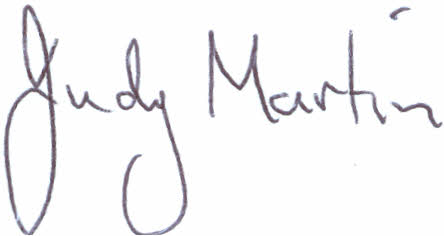 Judy Martin